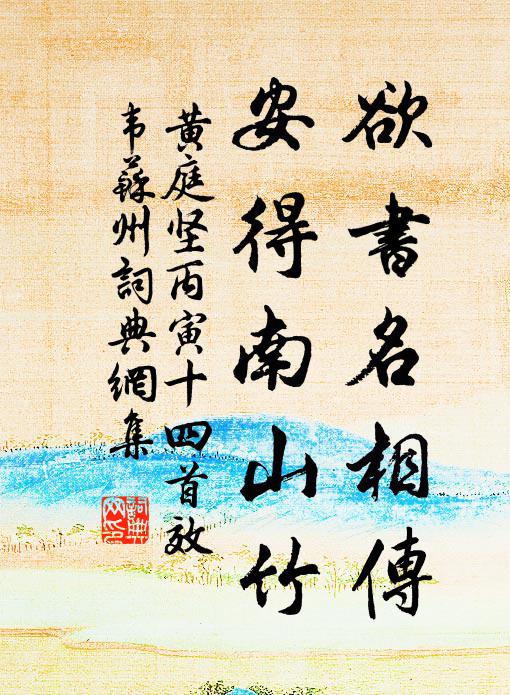 欲書名相傳
安得南山竹
黄庭坚丙寅十四首效
韦蘇州詞典網集